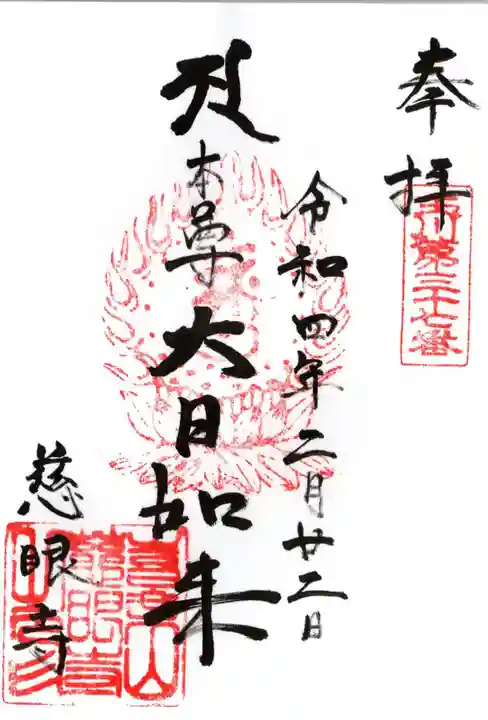 奉拝
玉川第三十七番
令和四年二月廿二日
本尊大日如来
慈眼寺
慈眼寺